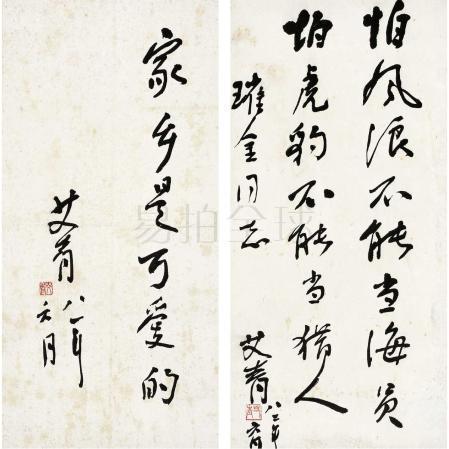 怕风浪不能当海员
怕虎豹不能当猎人
璀金同志
艾青
家乡是可爱的
艾青
八一年
易拍全球